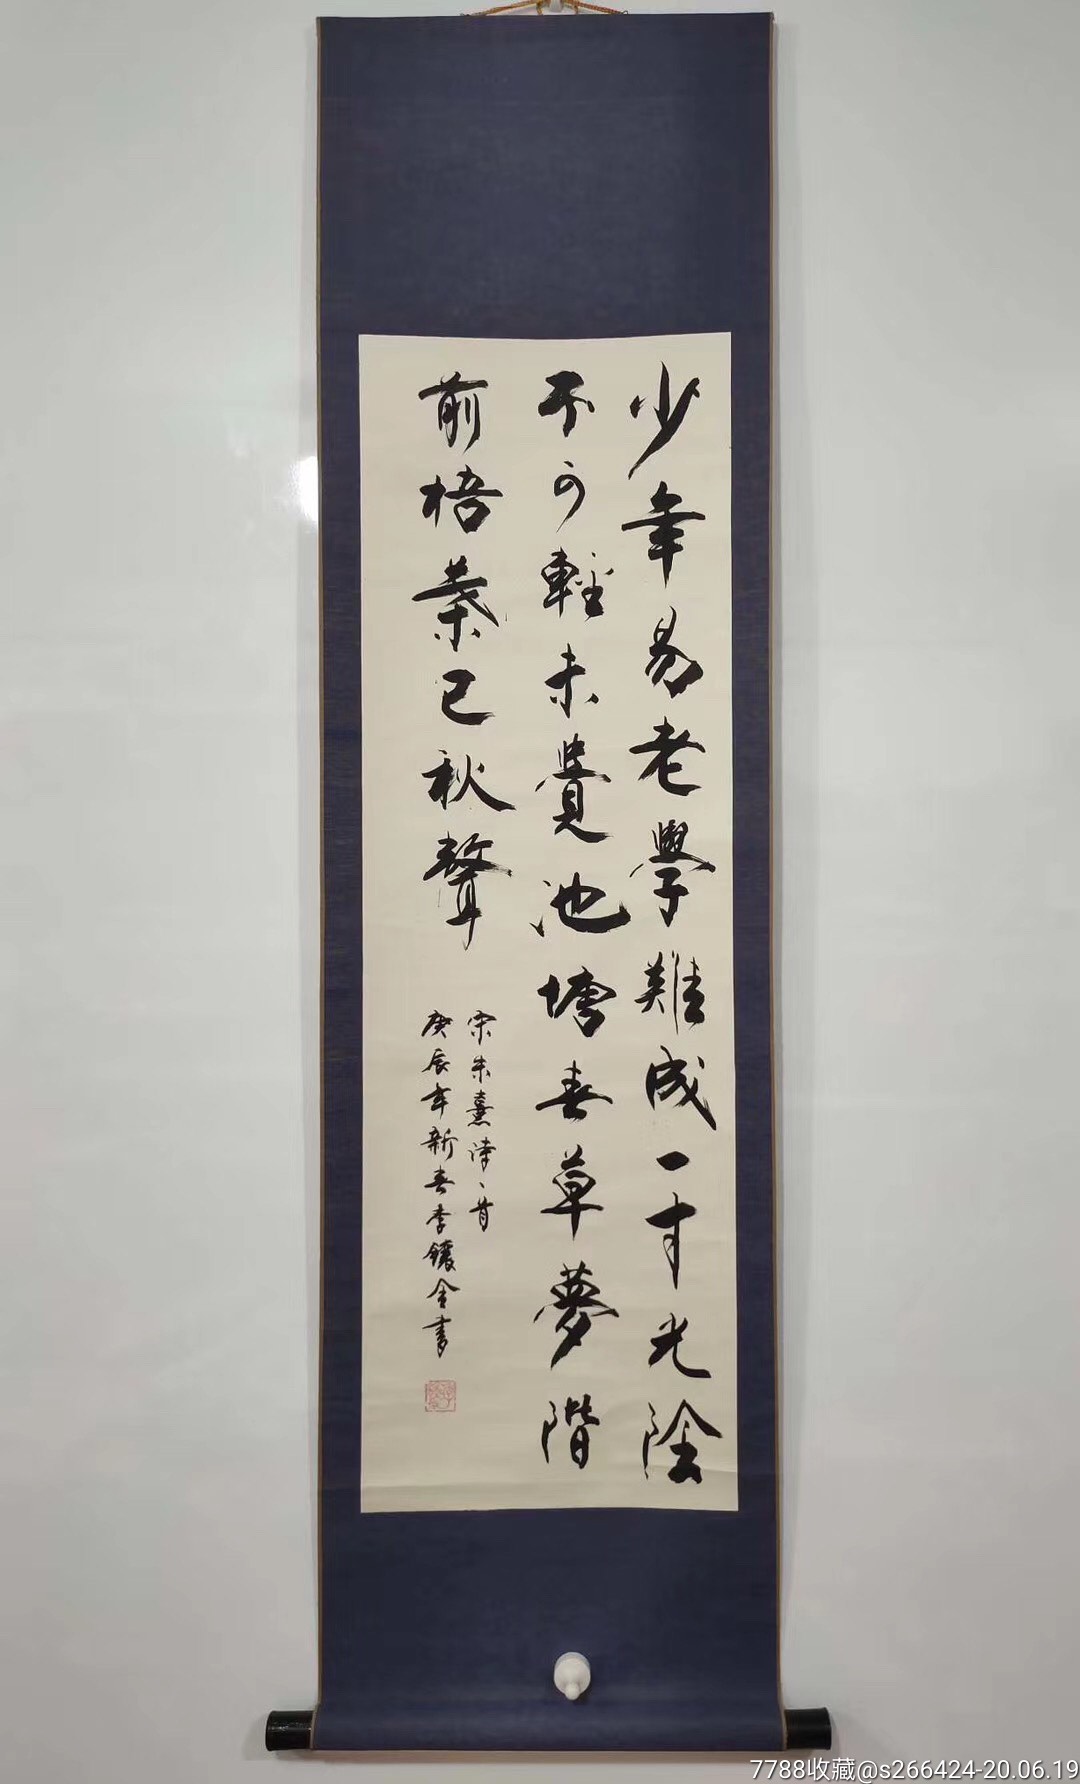 少年易老學難成一寸光陰
不可輕未覺池塘春草夢階
前梧葉已秋聲
宋朱熹詩一首
庚辰年新春李鑲金書
7788收藏@s266424-20.06.19